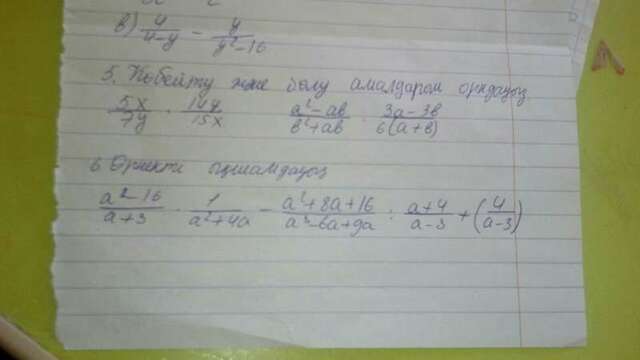 в) 4/4-y - y/y²-16
5. Көбейту және бөлу амалдарын орындаңыз
5x/7y · 14y/15x a²-ab/b²+ab : 3a-3b/6(a+b)
6. Өрнекті ықшамдаңыз
a²-16/a+3 · 1/a²+4a - a²+8a+16/a³-6a+9a : a+4/a-3 + (4/a-3)